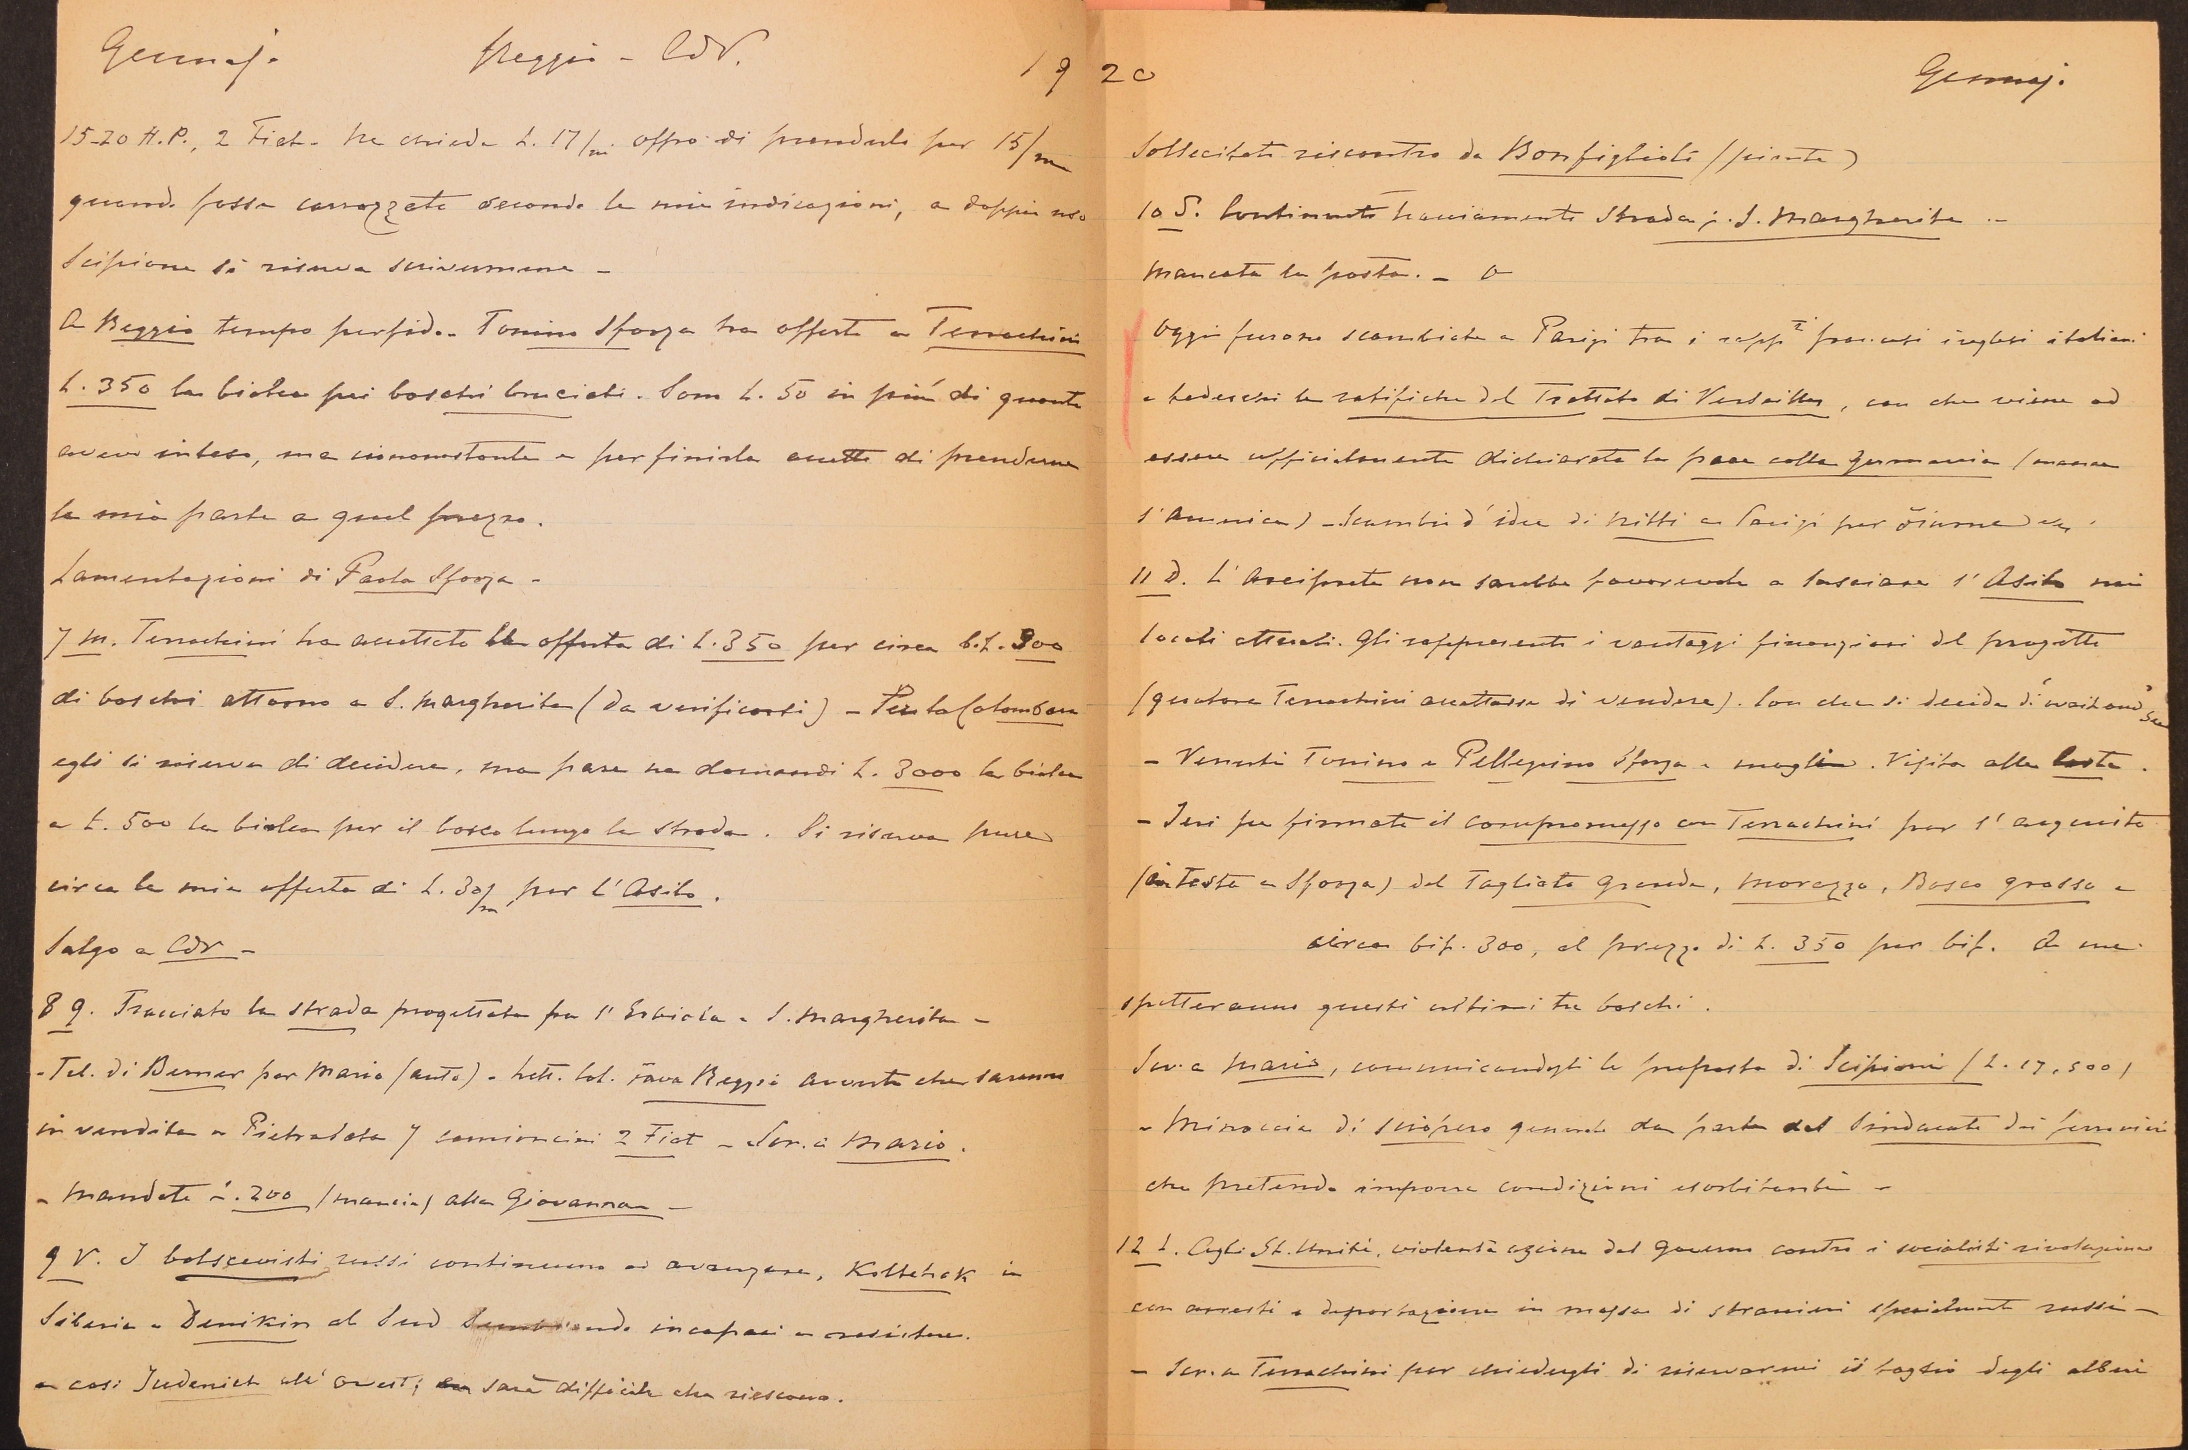 Gennaj. Reggio - CdV. 19
15-20 H.P., 2 Fiat - ne chiede L. 17/m offro di prenderlo per 15/m
quando fosse carrozzata secondo le mie indicazioni, a doppio uso
Scipione si riserva scrivermene -
A Reggio tempo perfido - Tonino Sforza ha offerto a Terrachini
L. 350 la biolca pei boschi bruciati. Sono L. 50 in più di quanto
avevo inteso, ma ciononostante e per finirla accetto di prenderne
la mia parte a quel prezzo.
Lamentazioni di Paola Sforza -
7 M. Terrachini ha accettato la offerta di L. 350 per circa b.L. 300
di boschi attorno a S. Margherita (da verificarsi) - Per la Colombara
egli si riserva di decidere, ma pare ne domandi L. 3000 la biolca
e L. 500 la biolca per il bosco lungo la strada. Si riserva pure
circa la mia offerta di L. 30/m per l'Asilo.
Salgo a CdV -
8 g. Tracciato la strada progettata fra l' e S. Margherita -
- Tel. di Bemer per Mario (auto) - Lett. Col. Fava Reggio avverte che saranno
in vendita a Pietradata 7 camioncini 2 Fiat - Scr. a Mario.
- Mandate L. 200 (mancia) alla Giovanna -
9 V. I bolscevisti russi continuano ad avanzare, Koltchak in
Siberia e Denikin al Sud incapaci a resistere.
e così Judenich all'ovest; sarà difficile che riescano.
20 Gennaj.
Sollecitato riscontro da Bonfiglioli (piante)
10 S. Continuato tracciamento Strada p. S. Margherita -
Mancata la posta. -
Oggi furono scambiate a Parigi tra i rappti francesi inglesi italiani
e tedeschi le ratifiche del Trattato di Versailles, con che viene ad
essere ufficialmente dichiarata la pace colla Germania (manca
l'America) - Scambio d'idee di Nitti a Parigi per
11 D. L'Arciprete non sarebbe favorevole a lasciare l'Asilo nei
locali attuali. Gli rappresento i vantaggi finanziari del progetto
(qualora Terrachini accettasse di vendere). Con che si decide di
- Venuti Tonino e Pellegrino Sforza e moglie. Visita alla
- Ieri fu firmato il compromesso con Terrachini per l'acquisto
(in testa a Sforza) del Tagliata Grande, Morazzo, Bosco grosso e
circa bif. 300, al prezzo di L. 350 per bif. A me
spetteranno questi ultimi tre boschi.
Scr. a Mario, comunicandogli la proposta di Scipione (L. 17,500)
- Minaccia di sciopero generale da parte del Sindacato dei ferrovieri
che pretende imporre condizioni esorbitanti -
12 L. Agli St. Uniti, violenta azione del governo contro i socialisti rivoluzionari
con arresti e deportazione in massa di stranieri specialmente russi -
- Scr. a Terrachini per chiedergli di riservarmi il taglio degli alberi